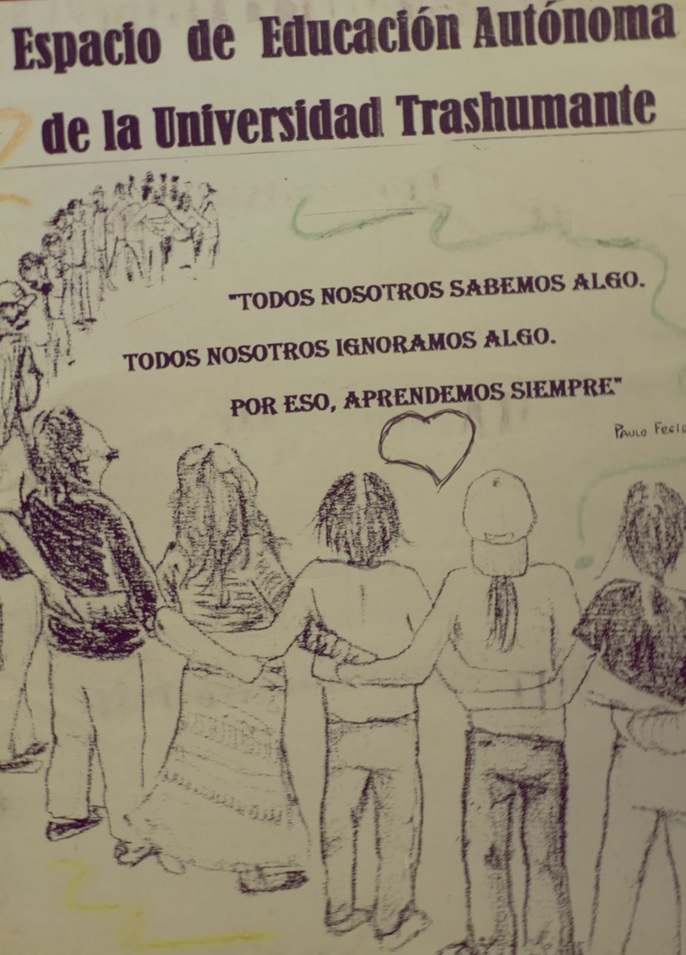 Espacio de Educación Autónoma
de la Universidad Trashumante
"TODOS NOSOTROS SABEMOS ALGO.
TODOS NOSOTROS IGNORAMOS ALGO.
POR ESO, APRENDEMOS SIEMPRE"
PAULO